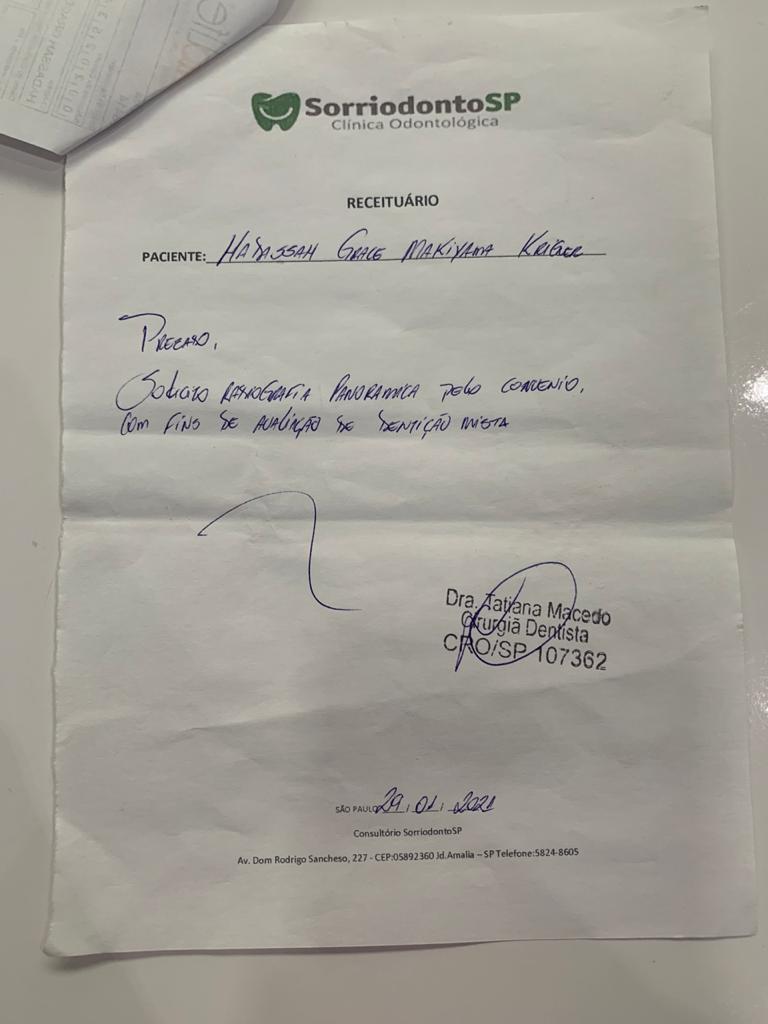 SorriodontoSP
Clínica Odontológica
RECEITUÁRIO
PACIENTE: HADASSAH GRACE MAKIYAMA KRIGER
PREZADO,
SOLICITO RADIOGRAFIA PANORAMICA PELO CONVENIO,
COM FINS DE AVALIAÇÃO DE DENTIÇÃO MISTA
Dra. Tatiana Macedo
Cirurgiã Dentista
CRO/SP 107362
SÃO PAULO 29, 01, 2021
Consultório SorriodontoSP
Av. Dom Rodrigo Sancheso, 227 - CEP:05892360 Jd.Amalia – SP Telefone:5824-8605